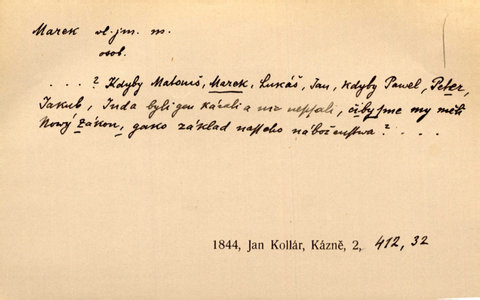 Marek vl. jm. m.
osob.
. . . . ? Kdyby Matouš, Marek, Lukáš, Jan, kdyby Pawel, Peter,
Jakub, Juda byli gen kázali a nepsali, čiby sme my měli
Nowý Zákon, gako základ nassého náboženstwa? . . . .
1844, Jan Kollár, Kázně, 2, 412, 32